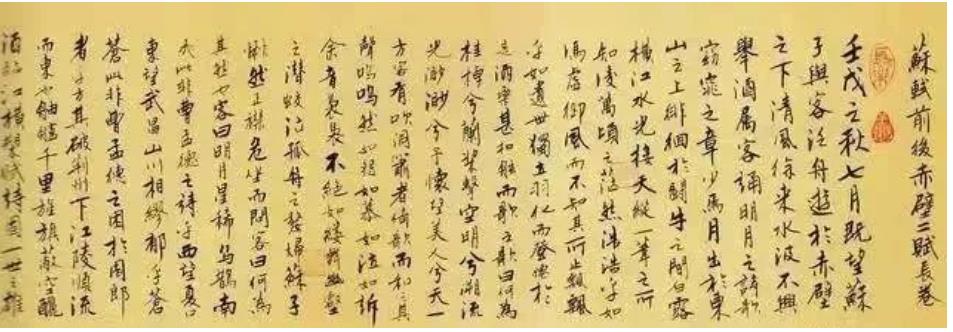 蘇賦前後赤壁二賦長卷
壬戌之秋七月既望蘇
子與客泛舟遊於赤壁
之下清風徐来水波不興
舉酒属客誦明月之詩歌
窈窕之章少焉月出於東
山之上徘徊於鬪牛之間白露
橫江水光接天縱一葦之所
如淩萬頃之茫然浩浩乎如
馮虚御風而不知其所止飄飄
乎如遺世獨立羽化而登僊於
是酒樂甚扣舷而歌之歌曰何為
桂棹兮蘭槳擊空明兮溯流
光渺渺兮予懷望美人兮天一
方客有吹洞簫者倚歌而和之其
聲嗚嗚然如怨如慕如泣如訴
余音裊裊不絕如縷舞幽壑
之潛蛟泣孤舟之嫠婦蘇子
愀然正襟危坐而問客曰何為
其然也客曰明月星稀烏鵲南
飛此非曹孟德之詩乎西望夏口
東望武昌山川相繆郁乎蒼
蒼此非曹孟德之困於周郎
者乎方其破荆州下江陵順流
而東也舳艫千里旌旗蔽空釃
酒臨江橫槊賦詩固一世之雄